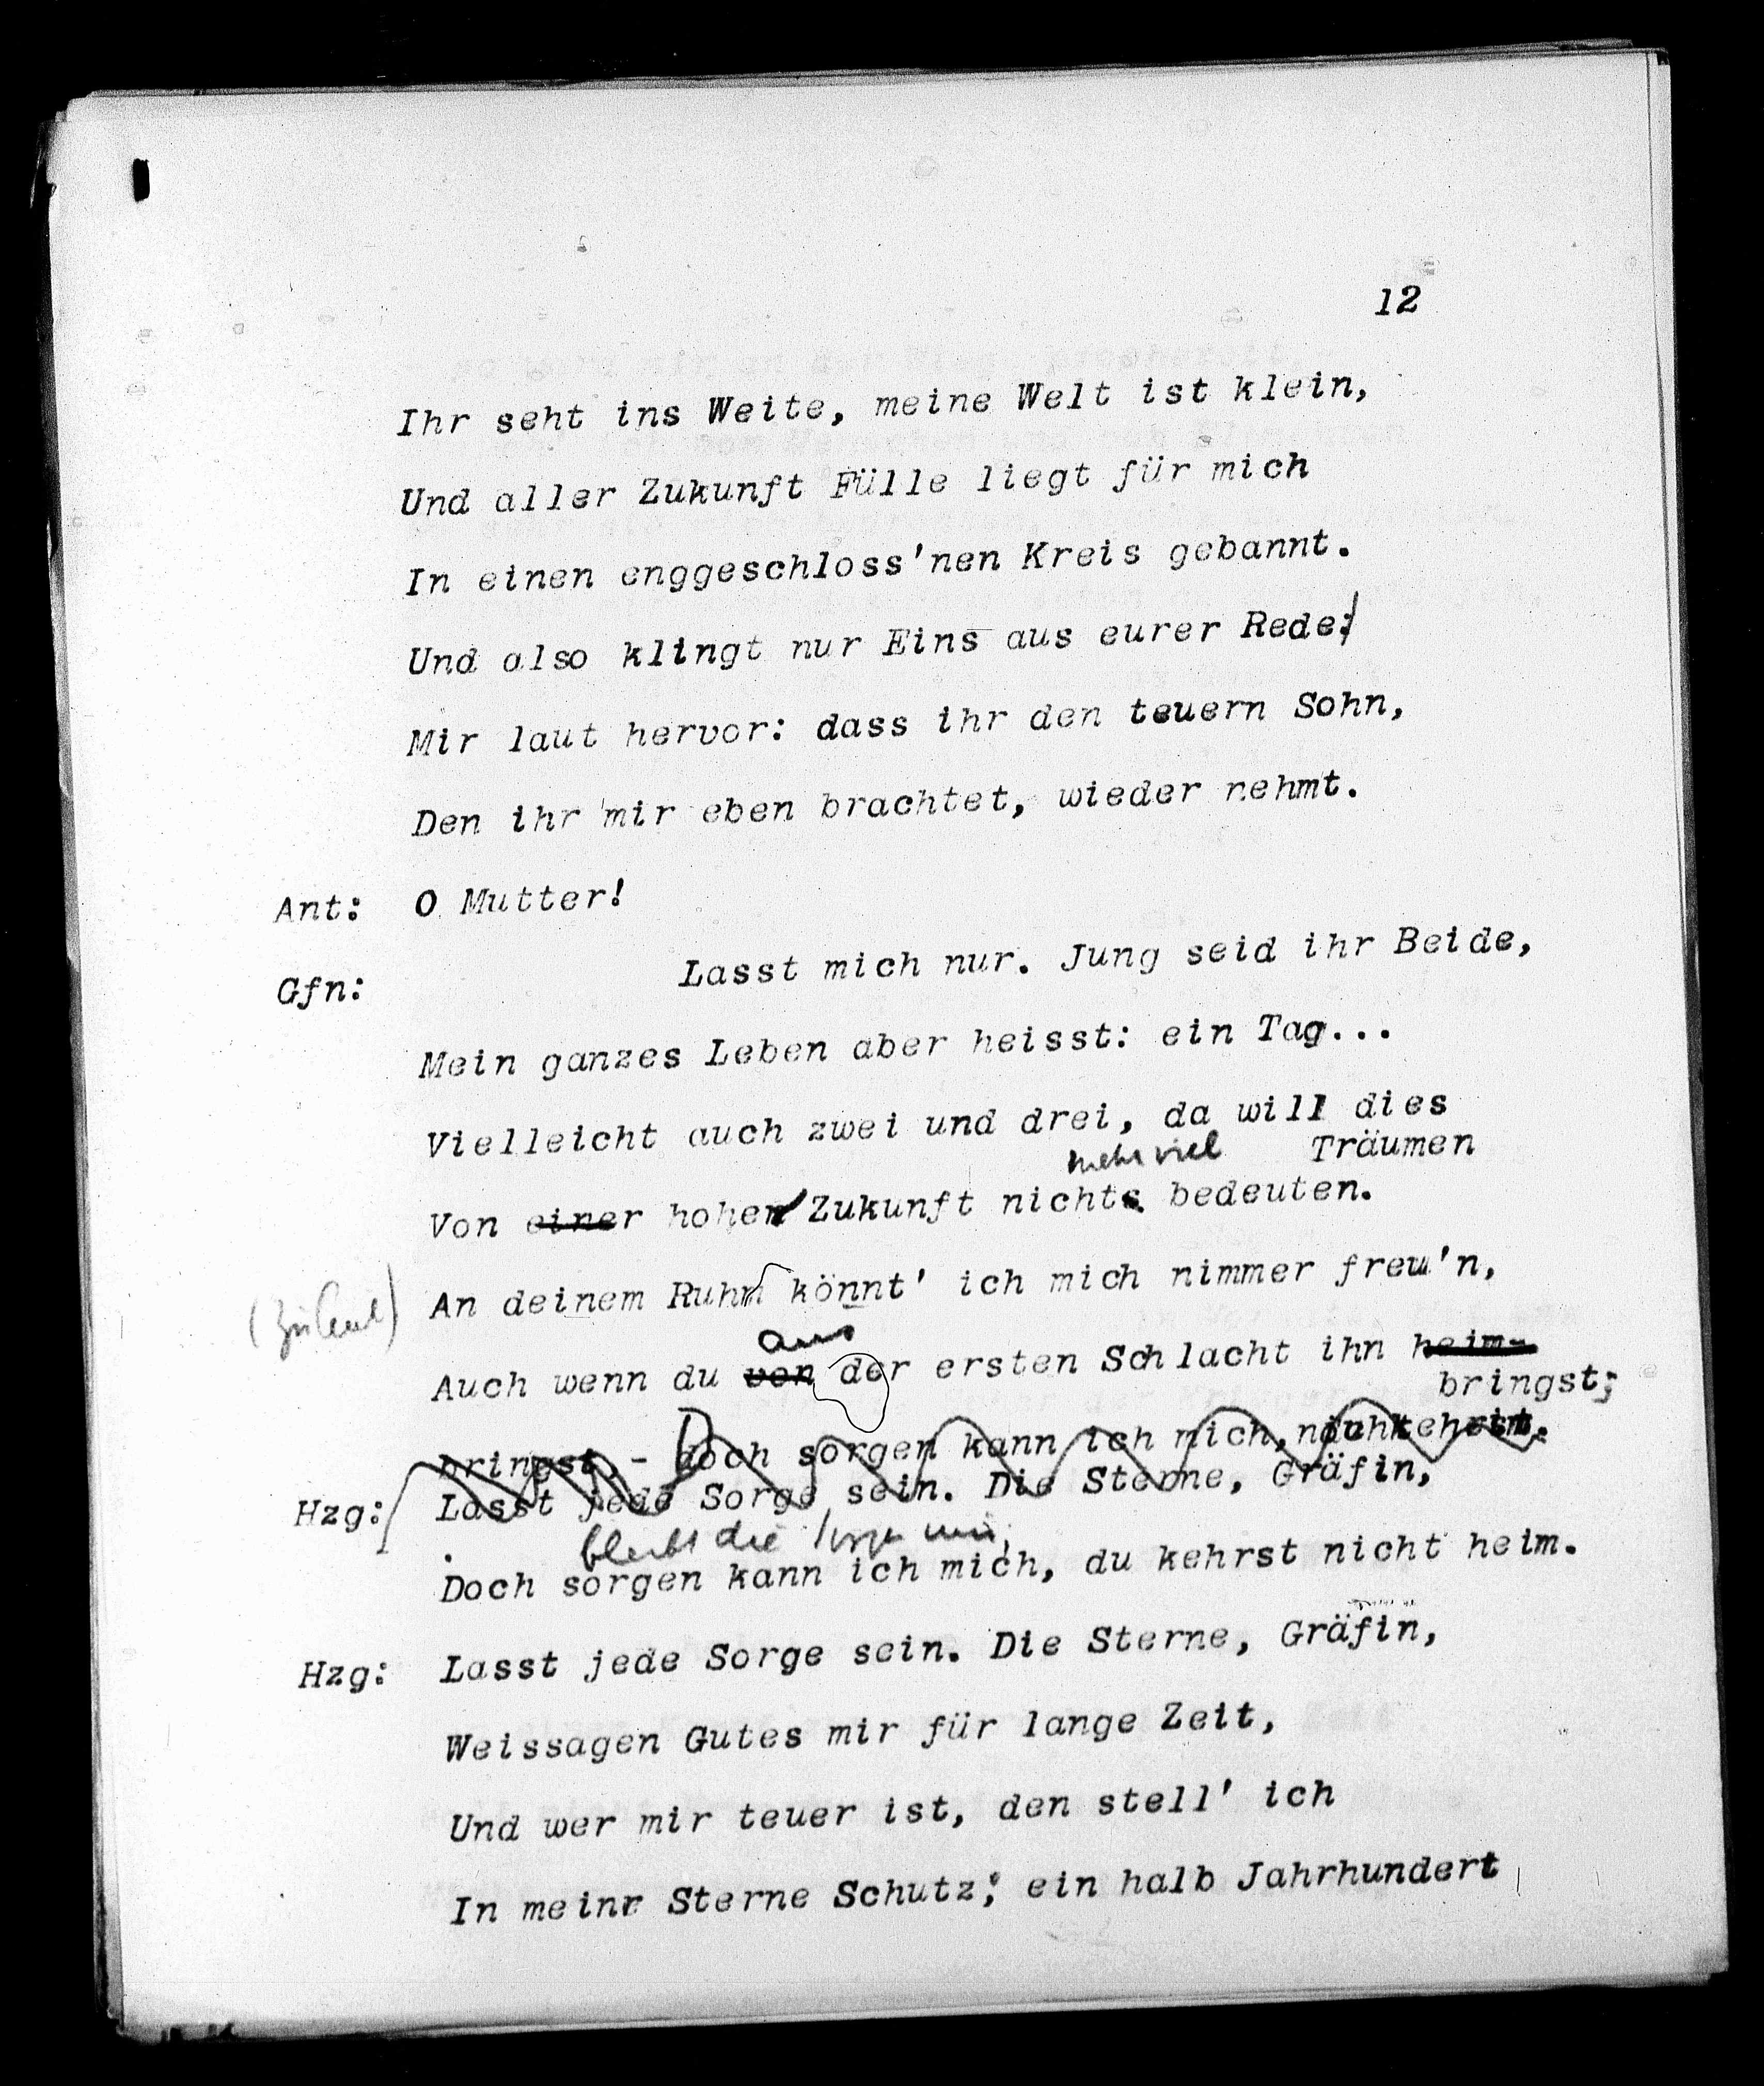 12
Ihr seht ins Weite, meine Welt ist klein,
Und aller Zukunft Fülle liegt für mich
In einen enggeschloss'nen Kreis gebannt.
Und also klingt nur Eins aus eurer Rede:
Mir laut hervor: dass ihr den teuern Sohn,
Den ihr mir eben brachtet, wieder nehmt.
Ant: O Mutter!
Gfn: Lasst mich nur. Jung seid ihr Beide,
Mein ganzes Leben aber heisst: ein Tag...
Vielleicht auch zwei und drei, da will dies
mehr viel Träumen
Von einer hoher Zukunft nichts bedeuten.
An deinem Ruhm könnt' ich mich nimmer freu'n,
aus
Auch wenn du von der ersten Schlacht ihn heim-
bringst;
bringst,- doch sorgen kann ich mich,
Hzg: Lasst jede Sorge sein. Die Sterne, Gräfin,
bleibt die
Doch sorgen kann ich mich, du kehrst nicht heim.
Hzg: Lasst jede Sorge sein. Die Sterne, Gräfin,
Weissagen Gutes mir für lange Zeit,
Und wer mir teuer ist, den stell' ich
In meinr Sterne Schutz; ein halb Jahrhundert